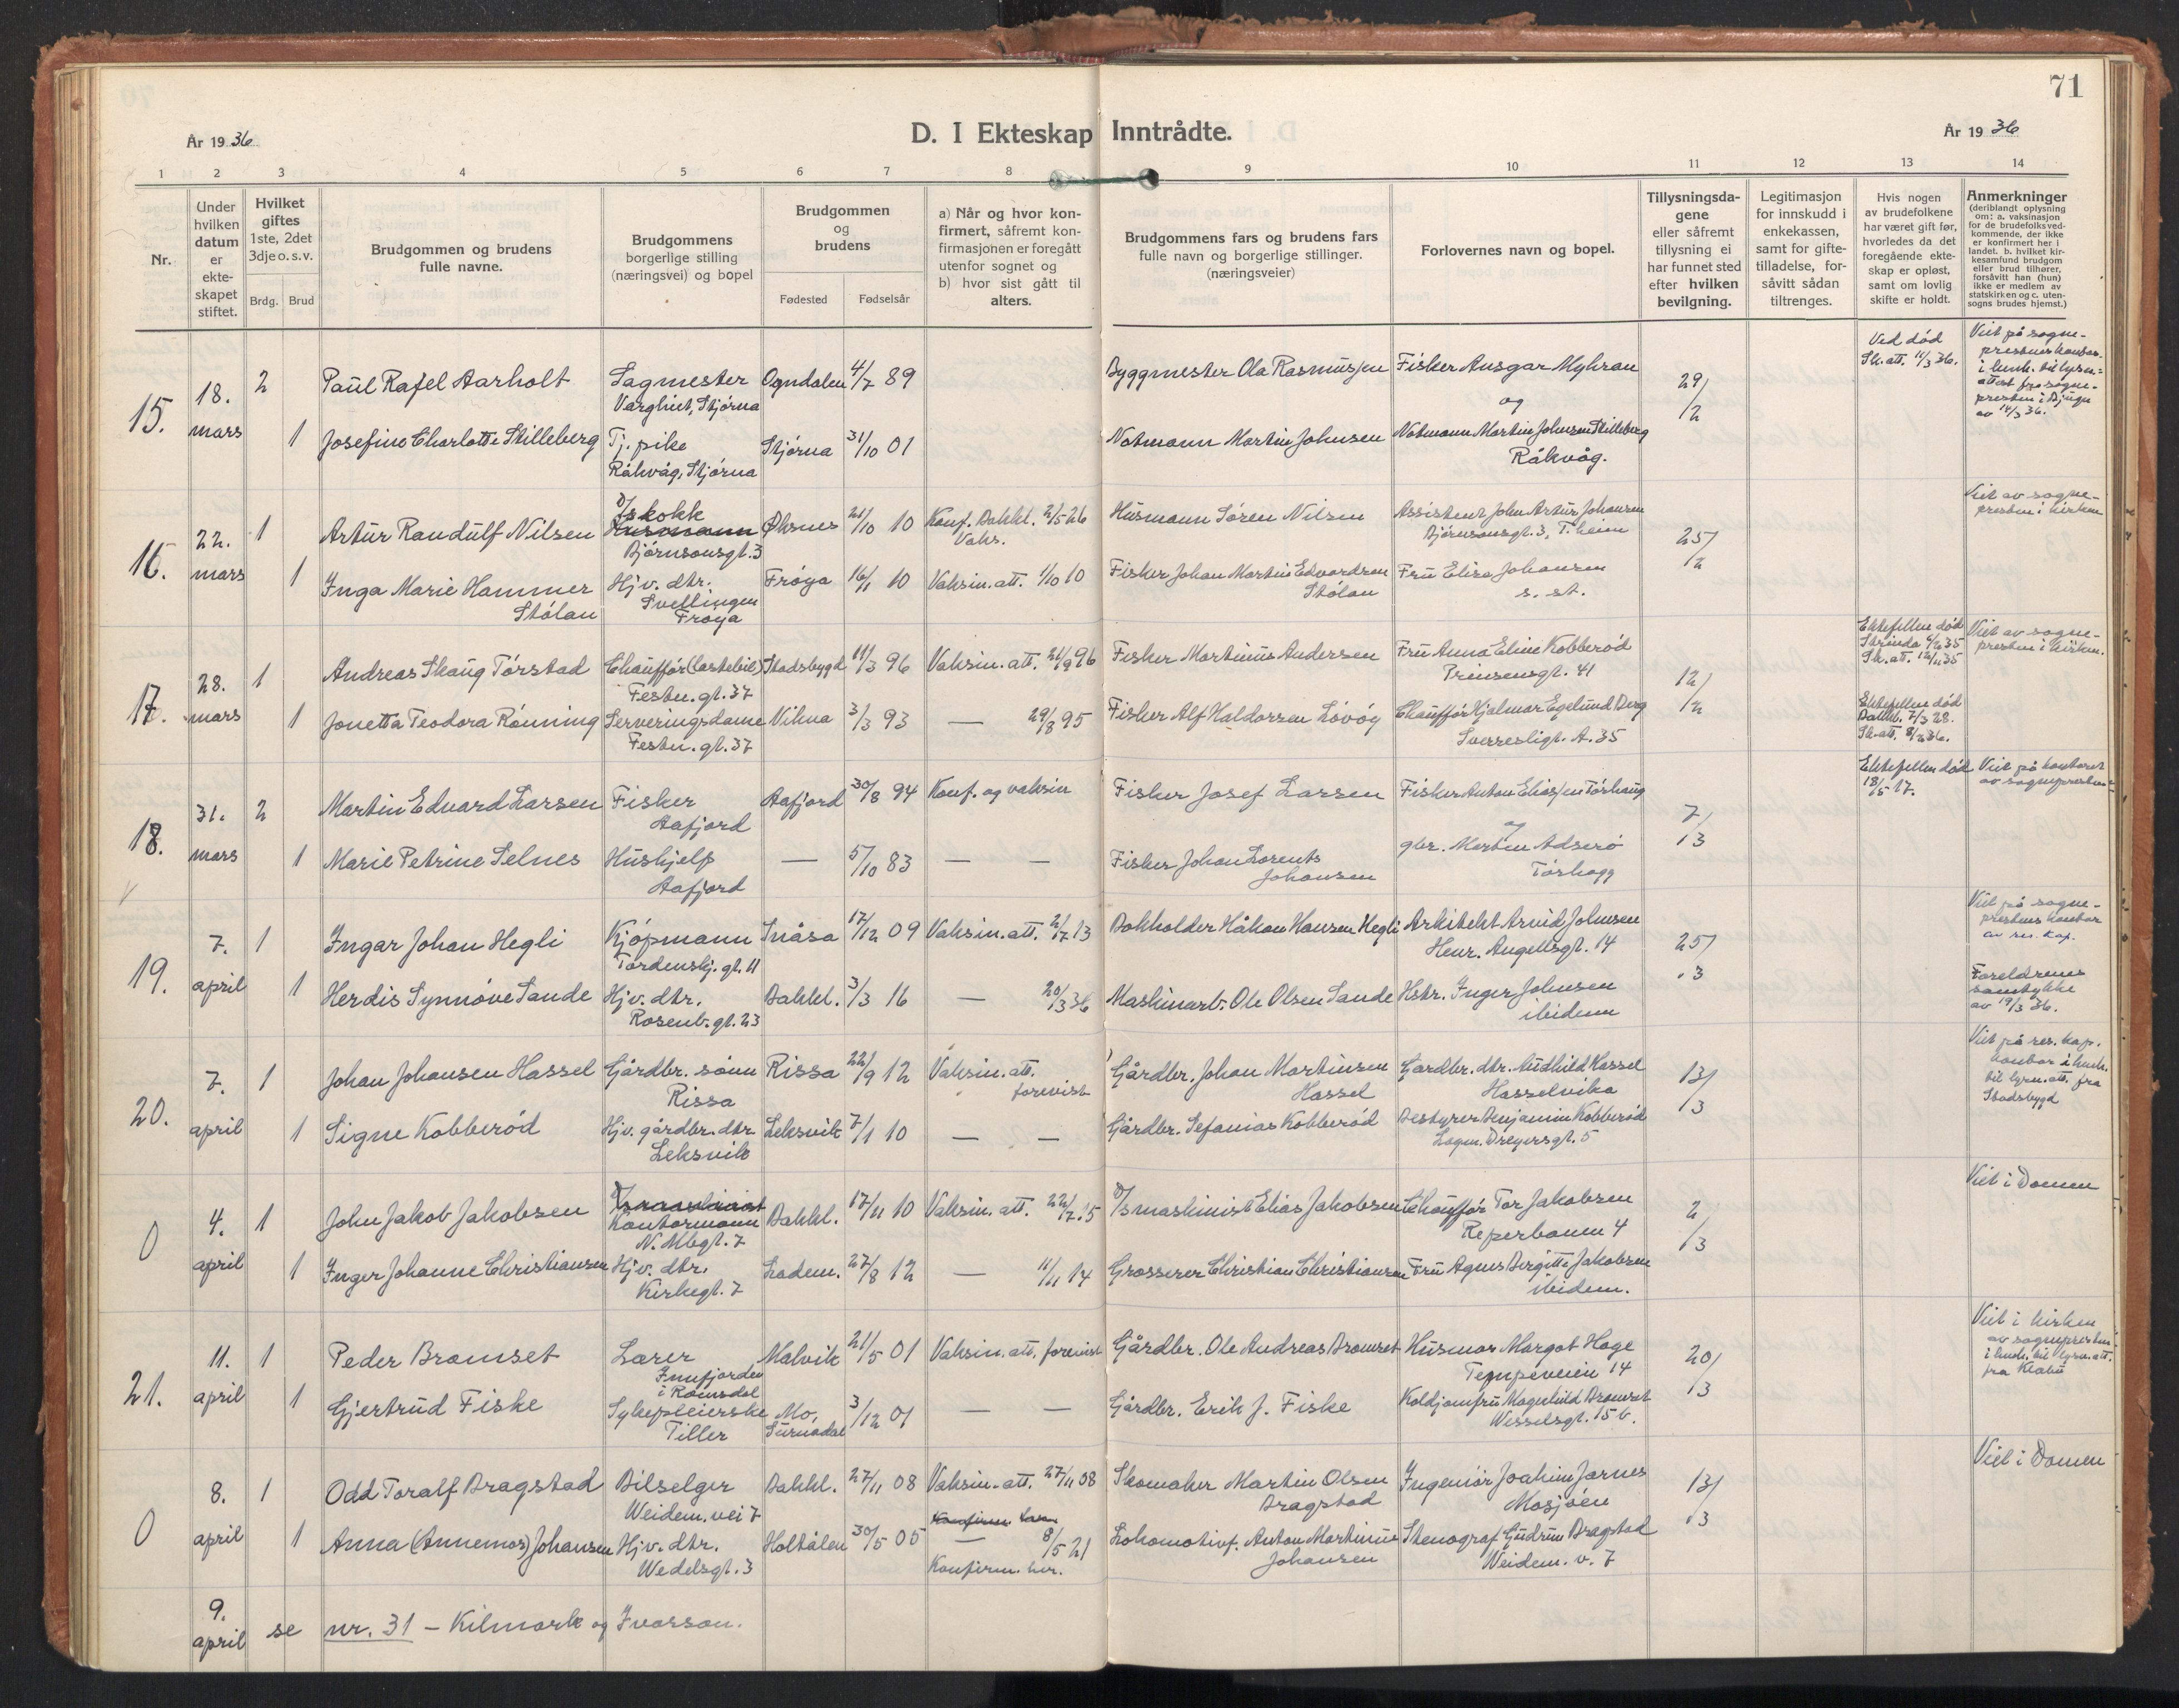 71
År 19 36
D. I Ekteskap Inntrådte.
År 19 36
1 2 3 4 5 6 7 8 9 10 11 12 13 14
Nr.
Under hvilken datum er ekte-skapet stiftet.
Hvilket giftes 1ste, 2det 3dje o. s. v.
Brdg. Brud
Brudgommen og brudens fulle navne.
Brudgommens borgerlige stilling (næringsvei) og bopel
Brudgommen og brudens
Fødested Fødselsår
a) Når og hvor kon-firmert, såfremt kon-firmasjonen er foregått utenfor sognet og
b) hvor sist gått til alters.
Brudgommens fars og brudens fars fulle navn og borgerlige stillinger. (næringsveier)
Forlovernes navn og bopel.
Tillysningsda-gene eller såfremt tillysning ei har funnet sted efter hvilken bevilgning.
Legitimasjon for innskudd i enkekassen, samt for gifte-tilladelse, for-såvitt sådan tiltrenges.
Hvis nogen av brudefolkene har været gift før, hvorledes da det foregående ekte-skap er opløst, samt om lovlig skifte er holdt.
Anmerkninger (deriblandt oplysning om: a. vaksinasjon for de brudefolksved-kommende, der ikke er konfirmert her i landet. b. hvilket kir-kesamfund brudgom eller brud tilhører, forsåvitt han (hun) ikke er medlem av statskirken og c. uten-sogns brudes hjemst.)
15. 18. mars
2 Paul Rafel Aarholt Sagmester Ogndalen 4/7 89 Byggmester Ola Rasmussen Fisker Ansgar Myhran 29/2
Varghiet, Stjørna og
Ved død
Sk. att. 11/3 36.
Viet på sogne-
prestens kontor.
i henh. til lysn.-
attest fra sogne-
presten i Bjugn
av 14/3 36.
1 Josefine Charlotte Stilleberg Tj. pike Stjørna 31/10 01 Notmann Martin Johnsen Notmann Martin Johnsen Stilleberg
Råkvåg, Stjørna Råkvåg.
16. 22. mars
1 Artur Randulf Nilsen D/s kokk Øksnes 21/10 10 Konf. Bakkl. 2/5 26 Husmann Søren Nilsen Assistent John Artur Johansen 25/2
Bjørnsonsgt. 3 Vaks. Bjørnsonsgt. 3, T.heim
Viet av sogne-
presten i kirken
1 Inga Marie Hammer Hjv. dtr. Frøya 16/1 10 Vaksin. att. 1/10 10 Fisker Johan Martin Edvardsen Fru Elise Johansen
Stølan Svellingen Stølan s. st.
Frøya
17. 28. mars
1 Andreas Skaug Tørstad Chauffør (lastebil) Stadsbygd 11/3 96 Vaksin. att. 21/9 96 Fisker Martinus Andersen Fru Anna Eline Kobberød 12/2
Festn. gt. 37 Prinsensgt. 41
Ektefellen død
Strinda 4/2 35
Sk. att. 12/11 35
Viet av sogne-
presten i kirken.
1 Jonetta Teodora Rønning Serveringsdame Vikna 3/3 93 — 29/8 95 Fisker Alf Haldorsen Løvøy Chauffør Hjalmar Egelund Berg
Festn. gt. 37 Sverresligt. A. 35
Ektefellen død
Bakkl. 7/3 28.
Sk. att. 8/2 36.
18. 31. mars
2 Martin Edvard Larsen Fisker Aafjord 30/8 94 Konf. og vaksin Fisker Josef Larsen Fisker Anton Eliassen Tørhaug 7/3
Aafjord og
Ektefellen død
18/5 17.
Viet på kontoret
av sognepresten
1 Marie Petrine Selnes Hushjelp — 5/10 83 — — Fisker Johan Lorents gbr. Morten Adserø
Aafjord Johansen Tørhogg
19. 7. april
1 Ingar Johan Hegli Kjøpmann Snåsa 17/12 09 Vaksin. att. 2/7 13 Bokholder Håkon Hansen Hegli Arkitekt Arvid Johnsen 25/3
Tordenskj. gt. 11 Henr. Angellsgt. 14
Viet på sogne-
prestens kontor
av res. kap.
1 Herdis Synnøve Sande Hjv. dtr. Bakkl. 3/3 16 — 20/3 36 Maskinarb. Ole Olsen Sande Hstr. Inger Johnsen
Rosenb. gt. 23 ibidem
Foreldrenes
samtykke
av 19/3 36.
20. 7. april
1 Johan Johansen Hassel Gårdbr. sønn Rissa 22/9 12 Vaksin. att. Gårdbr. Johan Martinsen Gardbr. dtr. Audhild Hassel 13/3
Rissa forevist Hassel Hasselvika
Viet på res. kap.
kontor i henh.
til lysn. att. fra
Stadsbygd
1 Signe Kobberød Hjv. gårdbr. dtr Leksvik 7/1 10 — — Gårdbr. Sefanias Kobberød Bestyrer Benjamin Kobberød
Leksvik Lagm. Dreyersgt. 5
0 4. april
1 John Jakob Jakobsen Kontormann Bakkl. 17/11 10 Vaksin. att. 22/7 15 D/s maskinist Elias Jakobsen Chauffør Tor Jakobsen 2/3
N. Mbgt. 7 Reperbanen 4
Viet i Domen
1 Inger Johanne Christiansen Hjv. dtr. Ladem. 27/8 12 — 11/11 14 Grosserer Christian Christiansen Fru Agnes Birgitte Jakobsen
Kirkegt. 7 ibidem.
21. 11. april
1 Peder Bromset Lærer Malvik 21/5 01 Vaksin. att. forevist Gårdbr. Ole Andreas Bromset Husmor Margot Hage 20/3
Innfjorden Tempeveien 14
i Romsdal
Viet i kirken
av sognepresten
i henh. til lysn. att.
fra Klæbu
1 Gjertrud Fiske Sykepleierske Mo, 3/12 01 — — Gårdbr. Erik J. Fiske Koldjomfru Magnhild Bromset
Tiller Surnadal Wesselsgt. 15 b.
0 8. april
1 Odd Toralf Bragstad Bilselger Bakkl. 27/11 08 Vaksin. att. 27/11 08 Skomaker Martin Olsen Ingeniør Joakim Jarnes 13/3
Weidem. vei 7 Bragstad Mosjøen
Viet i Domen
1 Anna (Annemor) Johansen Hjv. dtr. Holtålen 30/5 05 — 8/5 21 Lokomotivf. Anton Martinus Stenograf Gudrun Bragstad
Wedelsgt. 3 Konfirm. her. Johansen Weidem. v. 7
9. april se nr. 31 – Kilmork og Ivarson.